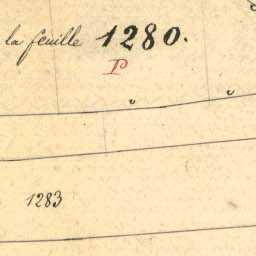 la feuille 1280.
P
1283